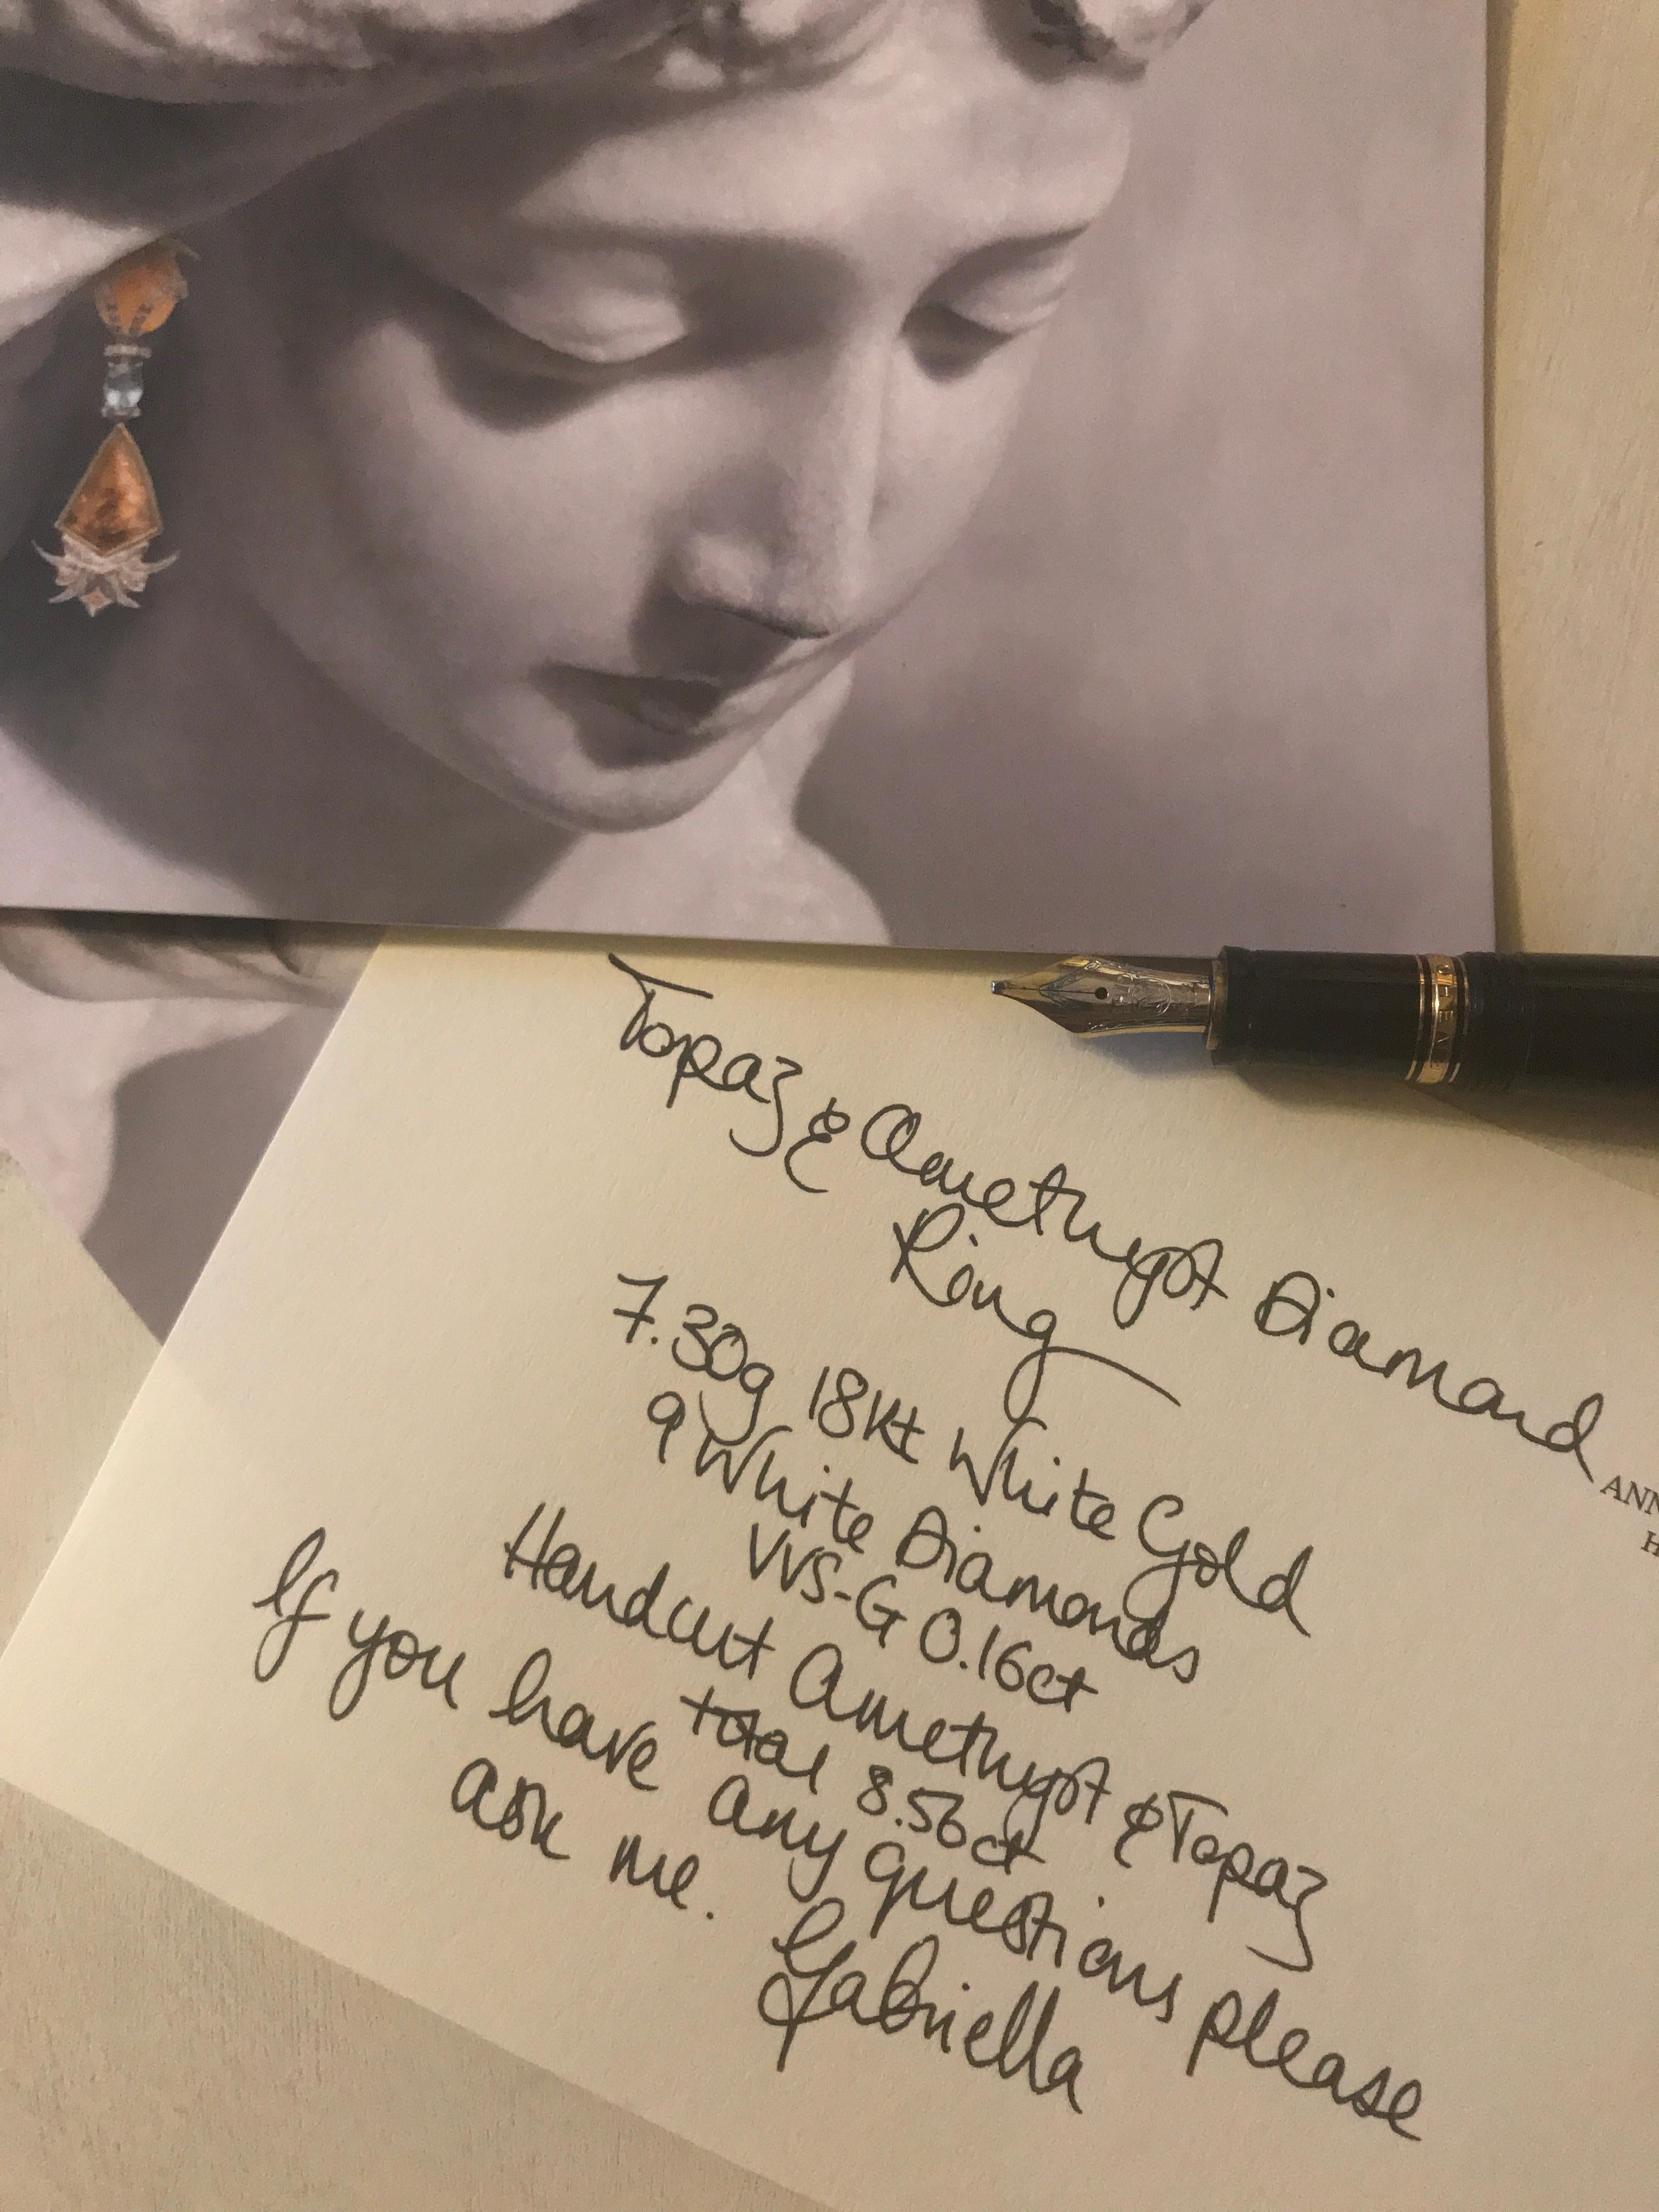 Topaz & Amethyst Diamond
Ring
7.30g 18Kt White Gold
9 White Diamonds
VVS-G 0.16ct
Handcut Amethyst & Topaz
total 8.56ct
If you have any questions please
ask me.
Gabriella